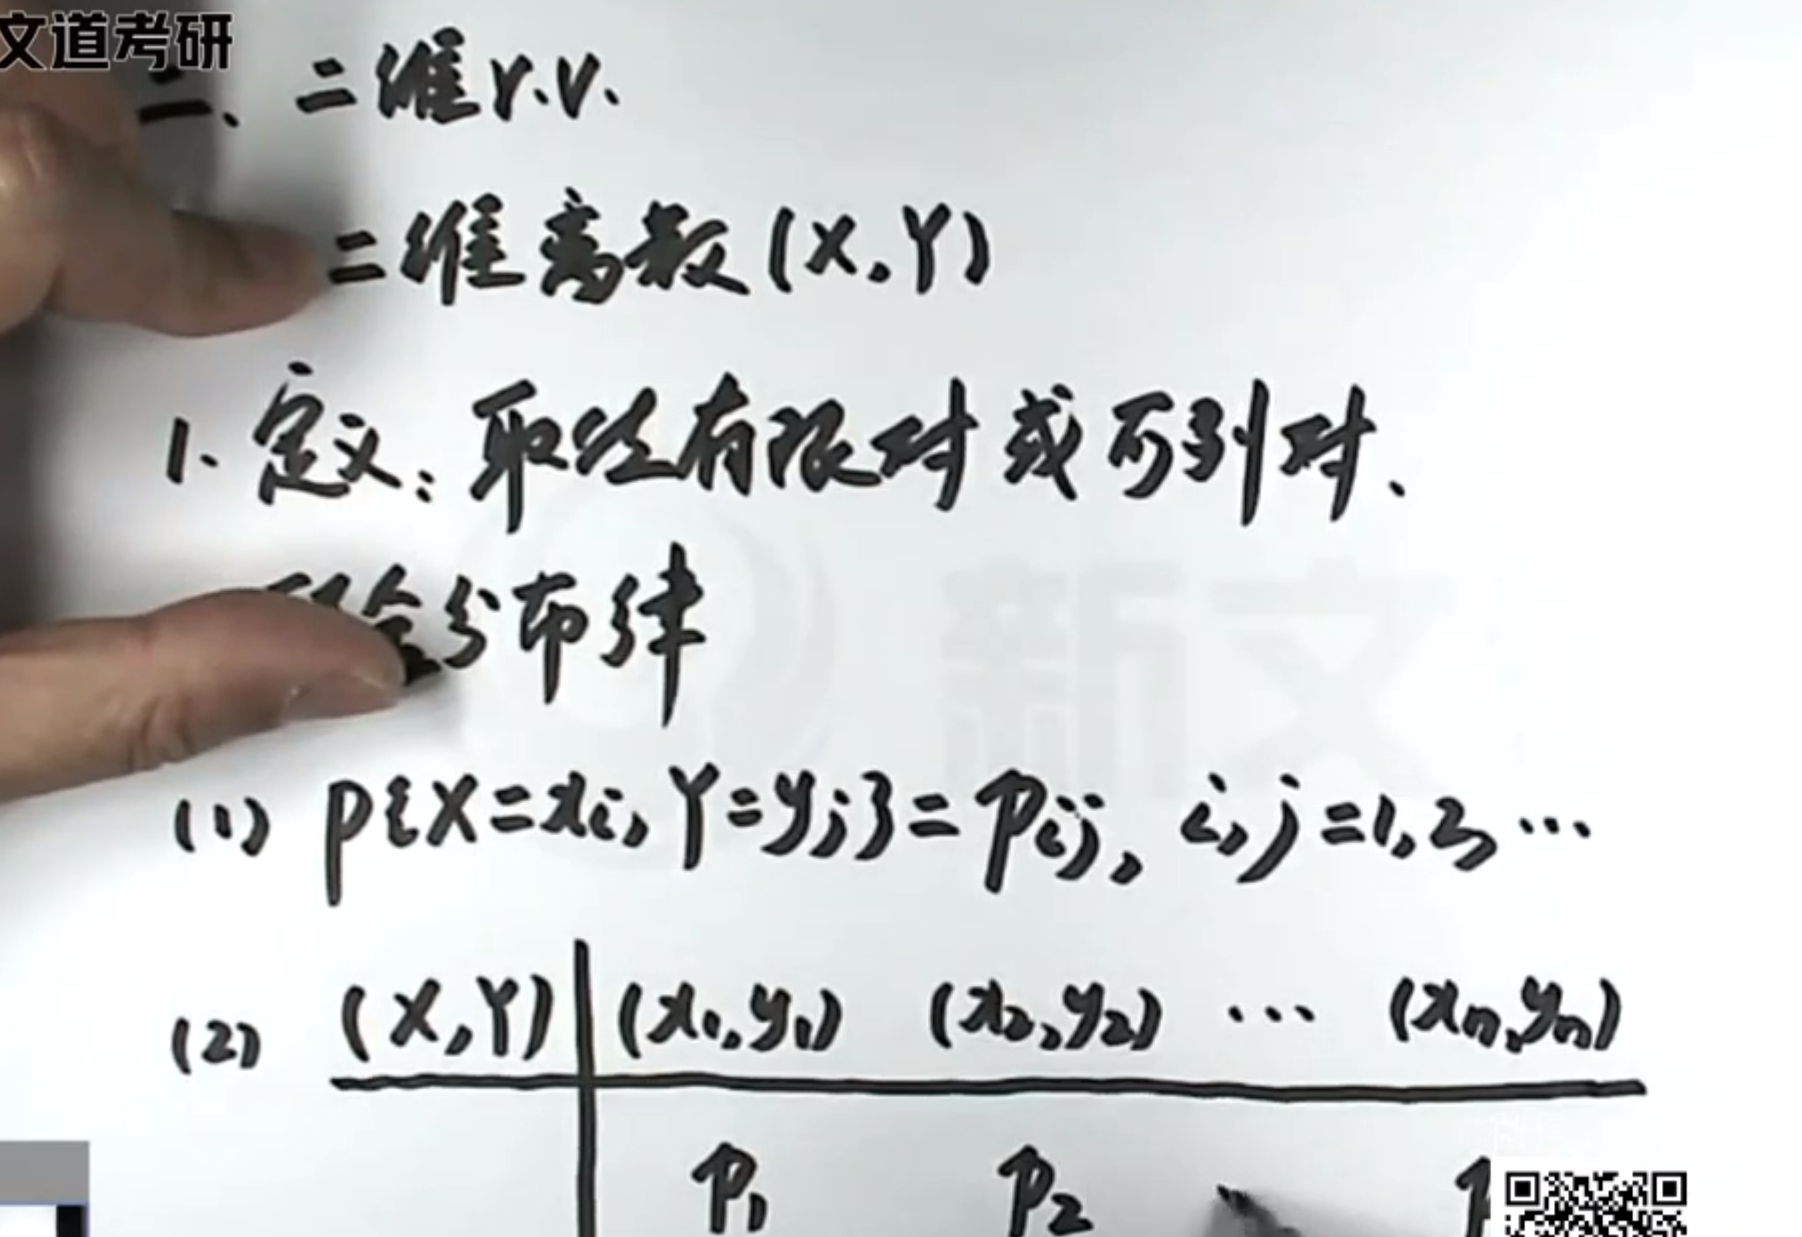 文道考研
二、二维r.v.
二维离散(X,Y)
1. 定义:取值有限对或可列对、
合分布律
(1) P{X=xi, Y=yj}=Pij, i,j=1,2,…
(2) (X,Y) (x1,y1) (x2,y2) … (xn,yn)
P1 P2 P
新文